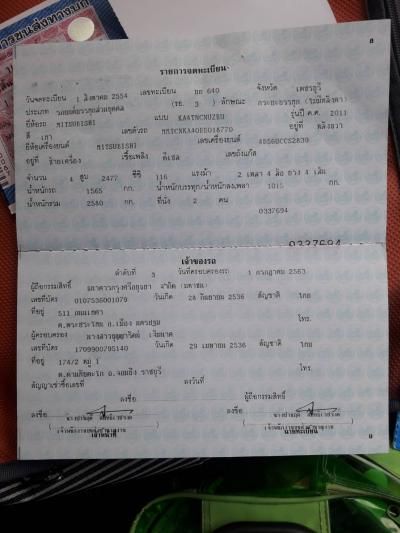 การขนส่งทางบก
8
รายการจดทะเบียน
วันจดทะเบียน 1 สิงหาคม 2554 เลขทะเบียน 640 จังหวัด เพชรบุรี
ประเภท รถยนต์บรรทุกส่วนบุคคล (รย. 3 ) ลักษณะ กระบะบรรทุก
ยี่ห้อรถ MITSUBISHI แบบ รุ่นปี ค.ศ. 2011
สี เทา เลขตัวรถ อยู่ที่
ยี่ห้อเครื่องยนต์ MITSUBISHI เลขเครื่องยนต์ 4D56UCCS2839
อยู่ที่ เชื้อเพลิง ดีเซล เลขถังแก๊ส
จำนวน 4 สูบ 2477 ซีซี 116 แรงม้า 2 เพลา 4 ล้อ ยาง 4 เส้น
น้ำหนักรถ 1565 กก. น้ำหนักบรรทุก/น้ำหนักลงเพลา 1015 กก.
น้ำหนักรวม 2580 กก. ที่นั่ง 2 คน
0337694
0337694
เจ้าของรถ
ลำดับที่ 3 วันที่ครอบครองรถ 1 กรกฎาคม 2563
ผู้ถือกรรมสิทธิ์ ธนาคารกรุงศรีอยุธยา จำกัด (มหาชน)
เลขที่บัตร 0107536001079 วันเกิด 28 กันยายน 2536 สัญชาติ ไทย
ที่อยู่ 511 โทร.
อ.เมือง นครปฐม
ผู้ครอบครอง
เลขที่บัตร 1709900795140 วันเกิด 29 เมษายน 2536 สัญชาติ ไทย
ที่อยู่ 174/2 หมู่ 1 โทร.
อ.จอมบึง ราชบุรี
สัญญาเช่าซื้อเลขที่ ลงวันที่
ลงชื่อ ผู้ถือกรรมสิทธิ์
ลงชื่อ ลงชื่อ
เจ้าหน้าที่ นายทะเบียน
9